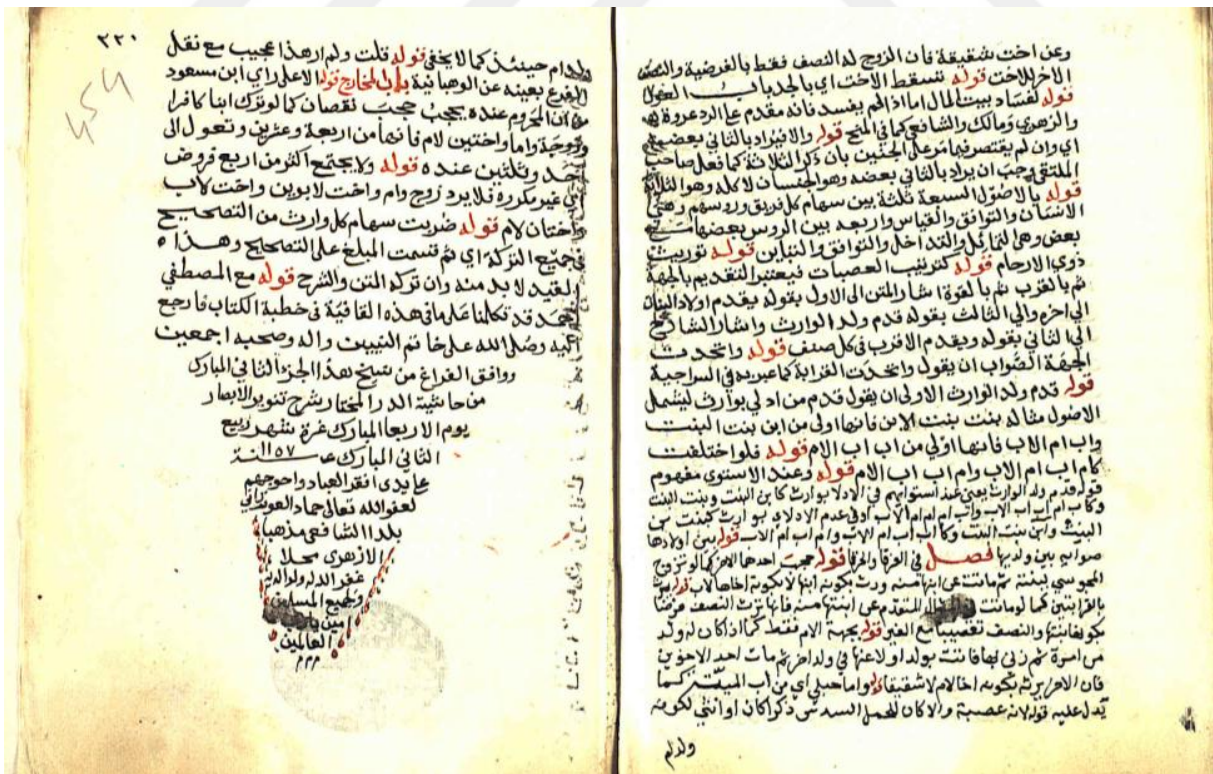 وعن اخت شقيقة فان الزوج له النصف فقط بالفرضية والنصف
الاخر للاخت قوله تسقط الاخت اي بالجد باب العول
قوله لفساد بيت المال اما اذا لم يفسد فانه مقدم على الرد عروة
والزهري ومالك والشافعي كما في المنح قوله والا فيراد بالثاني بعضه
اي وان لم يقتصر فيما مر على الجنين بان ذكر الثلاثة كما فعل صاحب
الملتقى وجب ان يراد بالثاني بعضه وهو الجنسان لا كله وهو الثلاثة
قوله بالاصول السبعة ثلثة بين سهام كل فريق وروسهم وهي
الاستان والتوافق والقياس واربعة بين الروس بعضها مع
بعض وهي التماثل والتداخل والتوافق والتباين قوله توريث
ذوي الارحام قوله كترتيب العصبات فيعتبر التقديم بالجهة
ثم بالقرب ثم بالقوة اشار المتن الى الاول بقوله يقدم اولاد البنات
الى اخره والى الثالث بقوله قدم ولد الوارث واشار الشارح
الى الثاني بقوله ويقدم الاقرب في كل صنف قوله واتحدت
الجهة الصواب ان يقول واتحدت القرابة كما عبر به في السراجية
قوله قدم ولد الوارث الاولى ان يقول قدم من ادلي بوارث ليشمل
الاصول مثاله بنت بنت الابن فانها اولى من ابن بنت البنت
واب ام الاب فانها اولي من اب اب الام قوله فلو اختلفت
كام اب ام الاب وام اب اب الام قوله وعند الاستوي مفهوم
قوله قدم ولد الوارث يعني عند استوايهم في الادلا بوارث كابن البنت وبنت البنت
وكاب ام اب اب الاب واب ام ام ام الاب او في عدم الادلاء بوارث كبنت بنت
البنت وابن بنت البنت وكاب اب ام الاب وام اب ام الاب قوله بين اولادها
صوابه بين ولديها فصل في الغرقا والحرقا قوله حجب احدهما الاخر كما لو تزوج
المجوسي ببنته ثم ماتت عن ابنها منه ورث بكونه ابنها لا بكونه اخاها لاب
بالقرابتين كما لو ماتت المتقدم عن ابنتها منه فانها ترث النصف فرضا
بكونها بنتها والنصف تعصيبا مع الغير قوله بجهة الام فقط كما اذا كان له ولد
من امرة ثم زني بها فاتت بولد او لاعنها في ولد اخر ثم مات احد الاخوين
فان الاخر يرثه بكونه اخا لام لا شقيقا قوله واما حبلي اي من اب الميت كما
يدل عليه قوله لانه عصبة والا كان للحمل السدس ذكرا كان او انثي لكونه
ولد لم
٢٢٠
ولد ام حينئذ كما لا يخفى قوله قلت ولم ار هذا عجيب مع نقل
الفرع بعينه عن الوهبانية باب المخارج قوله الا على راي ابن مسعود
فان المحروم عنده يحجب حجب نقصان كما لو ترك ابنا كافرا
وزوجة واما واختين لام فانها من اربعة وعشرين وتعول الى
احد وثلثين عنده قوله ولا يجتمع اكثر من اربع فروض
اي غير مكررة فلا يرد زوج وام واخت لابوين واخت لاب
واختان لام قوله ضربت سهام كل وارث من التصحيح
في جميع التركة اي ثم قسمت المبلغ على التصحيح وهذا
القيد لا بد منه وان تركه المتن والشرح قوله مع المصطفي
احمد قد تكلمنا على ما في هذه القافية في خطبة الكتاب فارجع
اليه وصلى الله على خاتم النبيين واله وصحبه اجمعين
ووافق الفراغ من نسخ هذا الجزء الثاني المبارك
من حاشية الدر المختار شرح تنوير الابصار
يوم الاربعا المبارك غرة شهر ربيع
الثاني المبارك عام ١١٥٧ سنة
على يدي افقر العباد واحوجهم
لعفو الله تعالى حماد العوني
بلدا الشافعي مذهبا
الازهري محلا
غفر الله له ولوالديه
ولجميع المسلمين
امين يا رب
العالمين
م م م